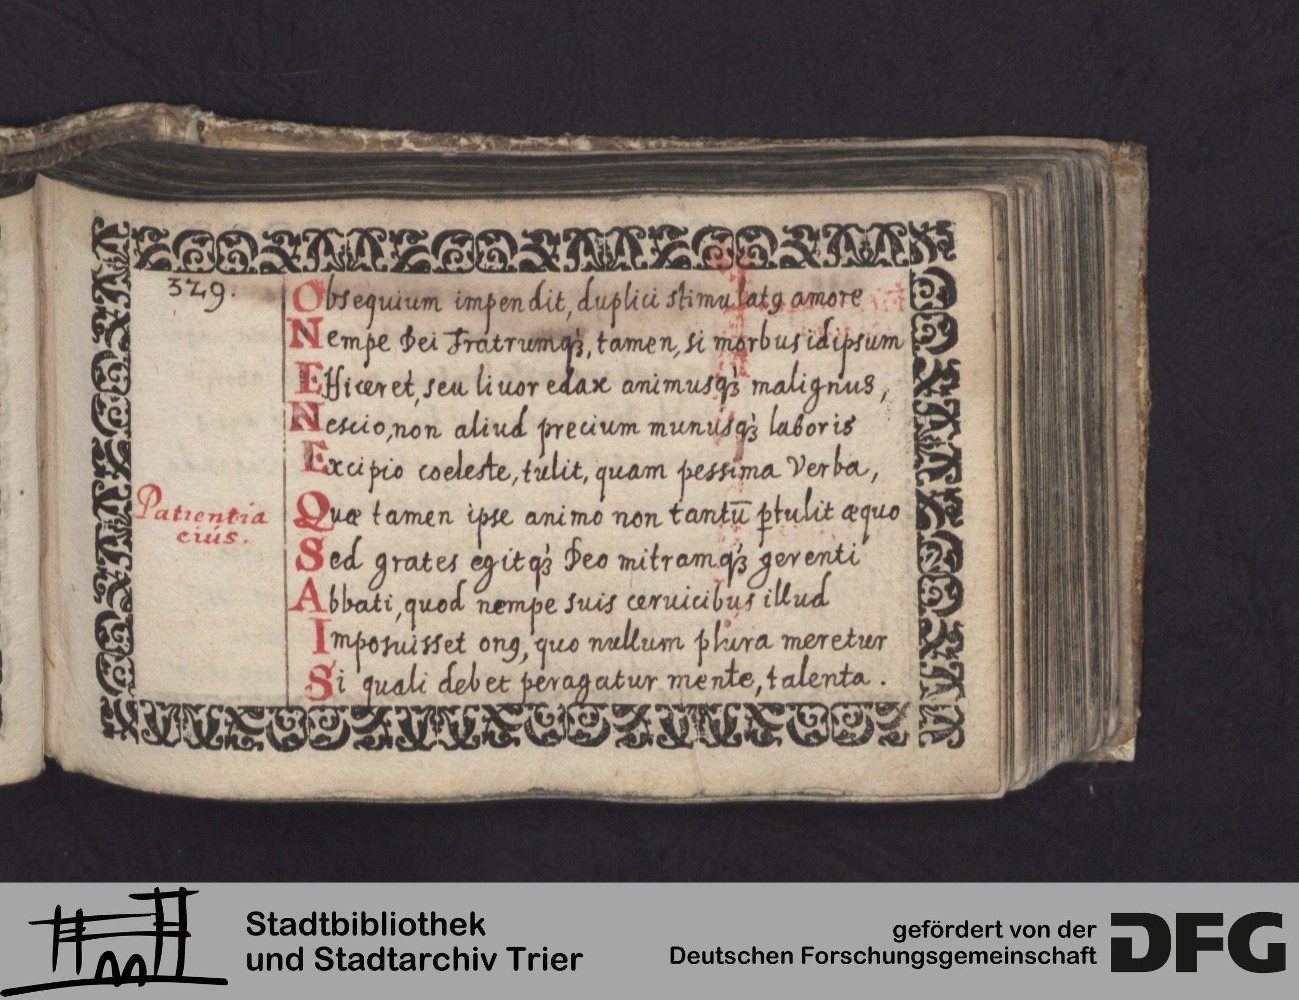 329.
Obsequium impendit, duplici stimulatꝯ amore
Nempe Dei Fratrumqꝫ, tamen, si morbus idipsum
Efficeret, seu livor edax animusqꝫ malignus,
Nescio, non aliud precium munusqꝫ laboris
Excipio coeleste, tulit, quam pessima Verba,
Patientia
eius.
Quæ tamen ipse animo non tantū ꝑtulit æquo
Sed grates egitqꝫ Deo mitramqꝫ gerenti
Abbati, quod nempe suis ceruicibus illud
Imposuisset onꝯ, quo nullum plura meretur
Si quali debet peragatur mente, talenta.
Stadtbibliothek
und Stadtarchiv Trier
gefördert von der
Deutschen Forschungsgemeinschaft
DFG